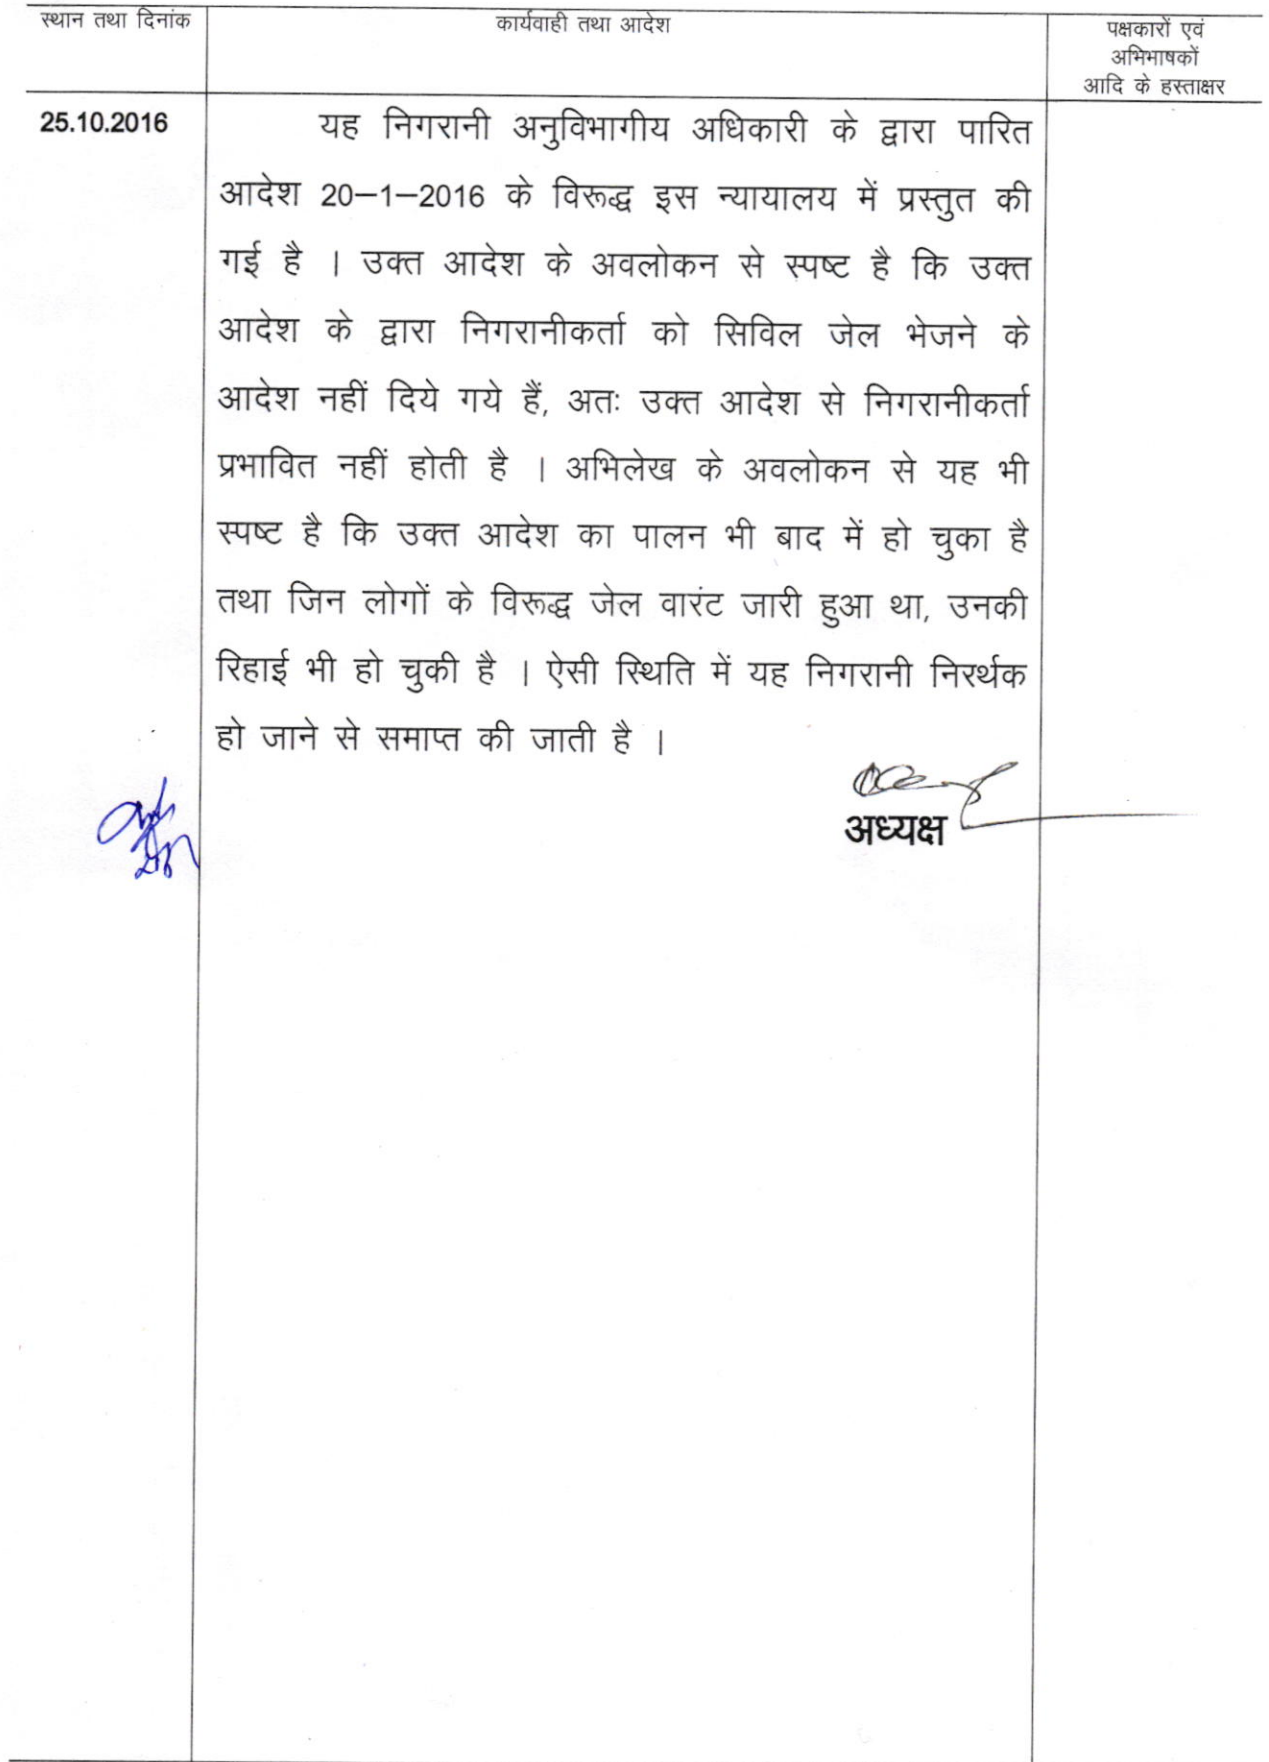 स्थान तथा दिनांक
कार्यवाही तथा आदेश
पक्षकारों एवं
अभिभाषकों
आदि के हस्ताक्षर
25.10.2016
यह निगरानी अनुविभागीय अधिकारी के द्वारा पारित
आदेश 20–1–2016 के विरूद्ध इस न्यायालय में प्रस्तुत की
गई है । उक्त आदेश के अवलोकन से स्पष्ट है कि उक्त
आदेश के द्वारा निगरानीकर्ता को सिविल जेल भेजने के
आदेश नहीं दिये गये हैं, अतः उक्त आदेश से निगरानीकर्ता
प्रभावित नहीं होती है । अभिलेख के अवलोकन से यह भी
स्पष्ट है कि उक्त आदेश का पालन भी बाद में हो चुका है
तथा जिन लोगों के विरूद्ध जेल वारंट जारी हुआ था, उनकी
रिहाई भी हो चुकी है । ऐसी स्थिति में यह निगरानी निरर्थक
हो जाने से समाप्त की जाती है ।
अध्यक्ष